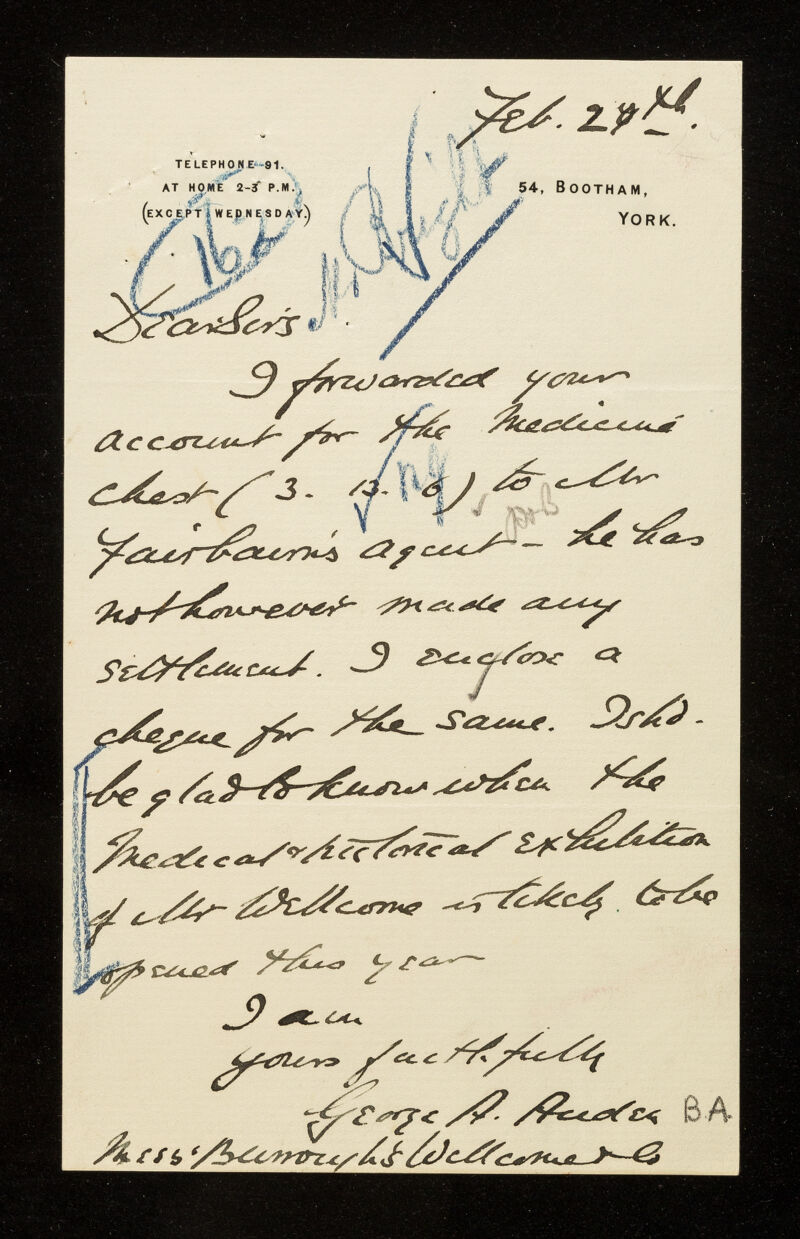 Feb. 24th.
TELEPHONE 91.
AT HOME 2-3 P.M.
(EXCEPT WEDNESDAY.)
54, BOOTHAM,
YORK.
Mr Bright
Dear Sirs
I forwarded your
account for the Medicine
Chest (3. 13. 6) to Mr
Fairbairn's agent - he has
not however made any
settlement. I enclose a
cheque for the same. I shd.
be glad to know when the
Medical & historical Exhibition
of Mr Wellcome is likely to be
opened this year
I am
yours faithfully
George A. Auden B.A.
Messrs Burroughs Wellcome & Co